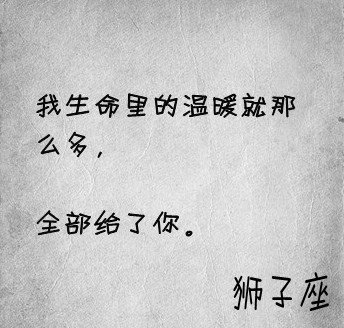 我生命里的温暖就那
么多，
全部给了你。
狮子座